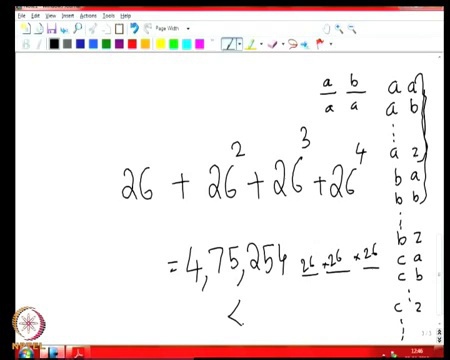 File Edit View Insert Actions Tools Help
Page Width
a b
a a
a a
a b
⋮
a z
b a
b b
⋮
b z
c a
c b
⋮
c z
⋮
26 + 26² + 26³ + 26⁴
= 4,75,254
26 × 26 × 26
<
3/3
12:46